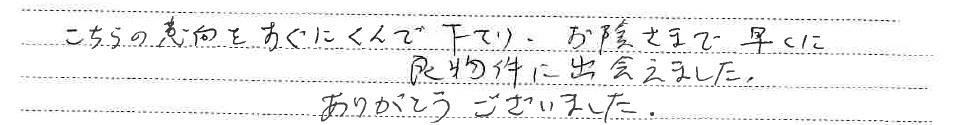 こちらの意向をすぐにくんで下さり、お陰さまで早くに
良物件に出会えました。
ありがとうございました。